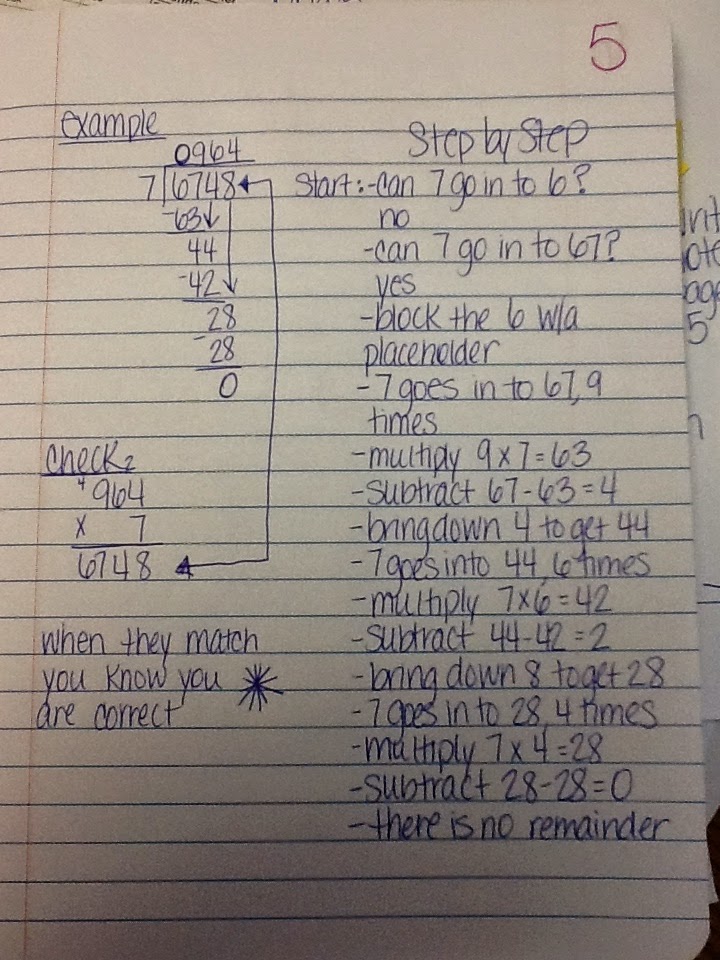 5
example
0964
7 6748
-63
44
-42
28
-28
0
check:
4
964
x 7
6748
when they match
you know you
are correct
Step by Step
Start: -can 7 go in to 6?
no
-can 7 go in to 67?
yes
-block the 6 w/a
placeholder
-7 goes in to 67, 9
times
-multiply 9x7=63
-subtract 67-63=4
-bring down 4 to get 44
-7 goes into 44, 6 times
-multiply 7x6=42
-subtract 44-42=2
-bring down 8 to get 28
-7 goes in to 28, 4 times
-multiply 7x4=28
-subtract 28-28=0
-there is no remainder
5